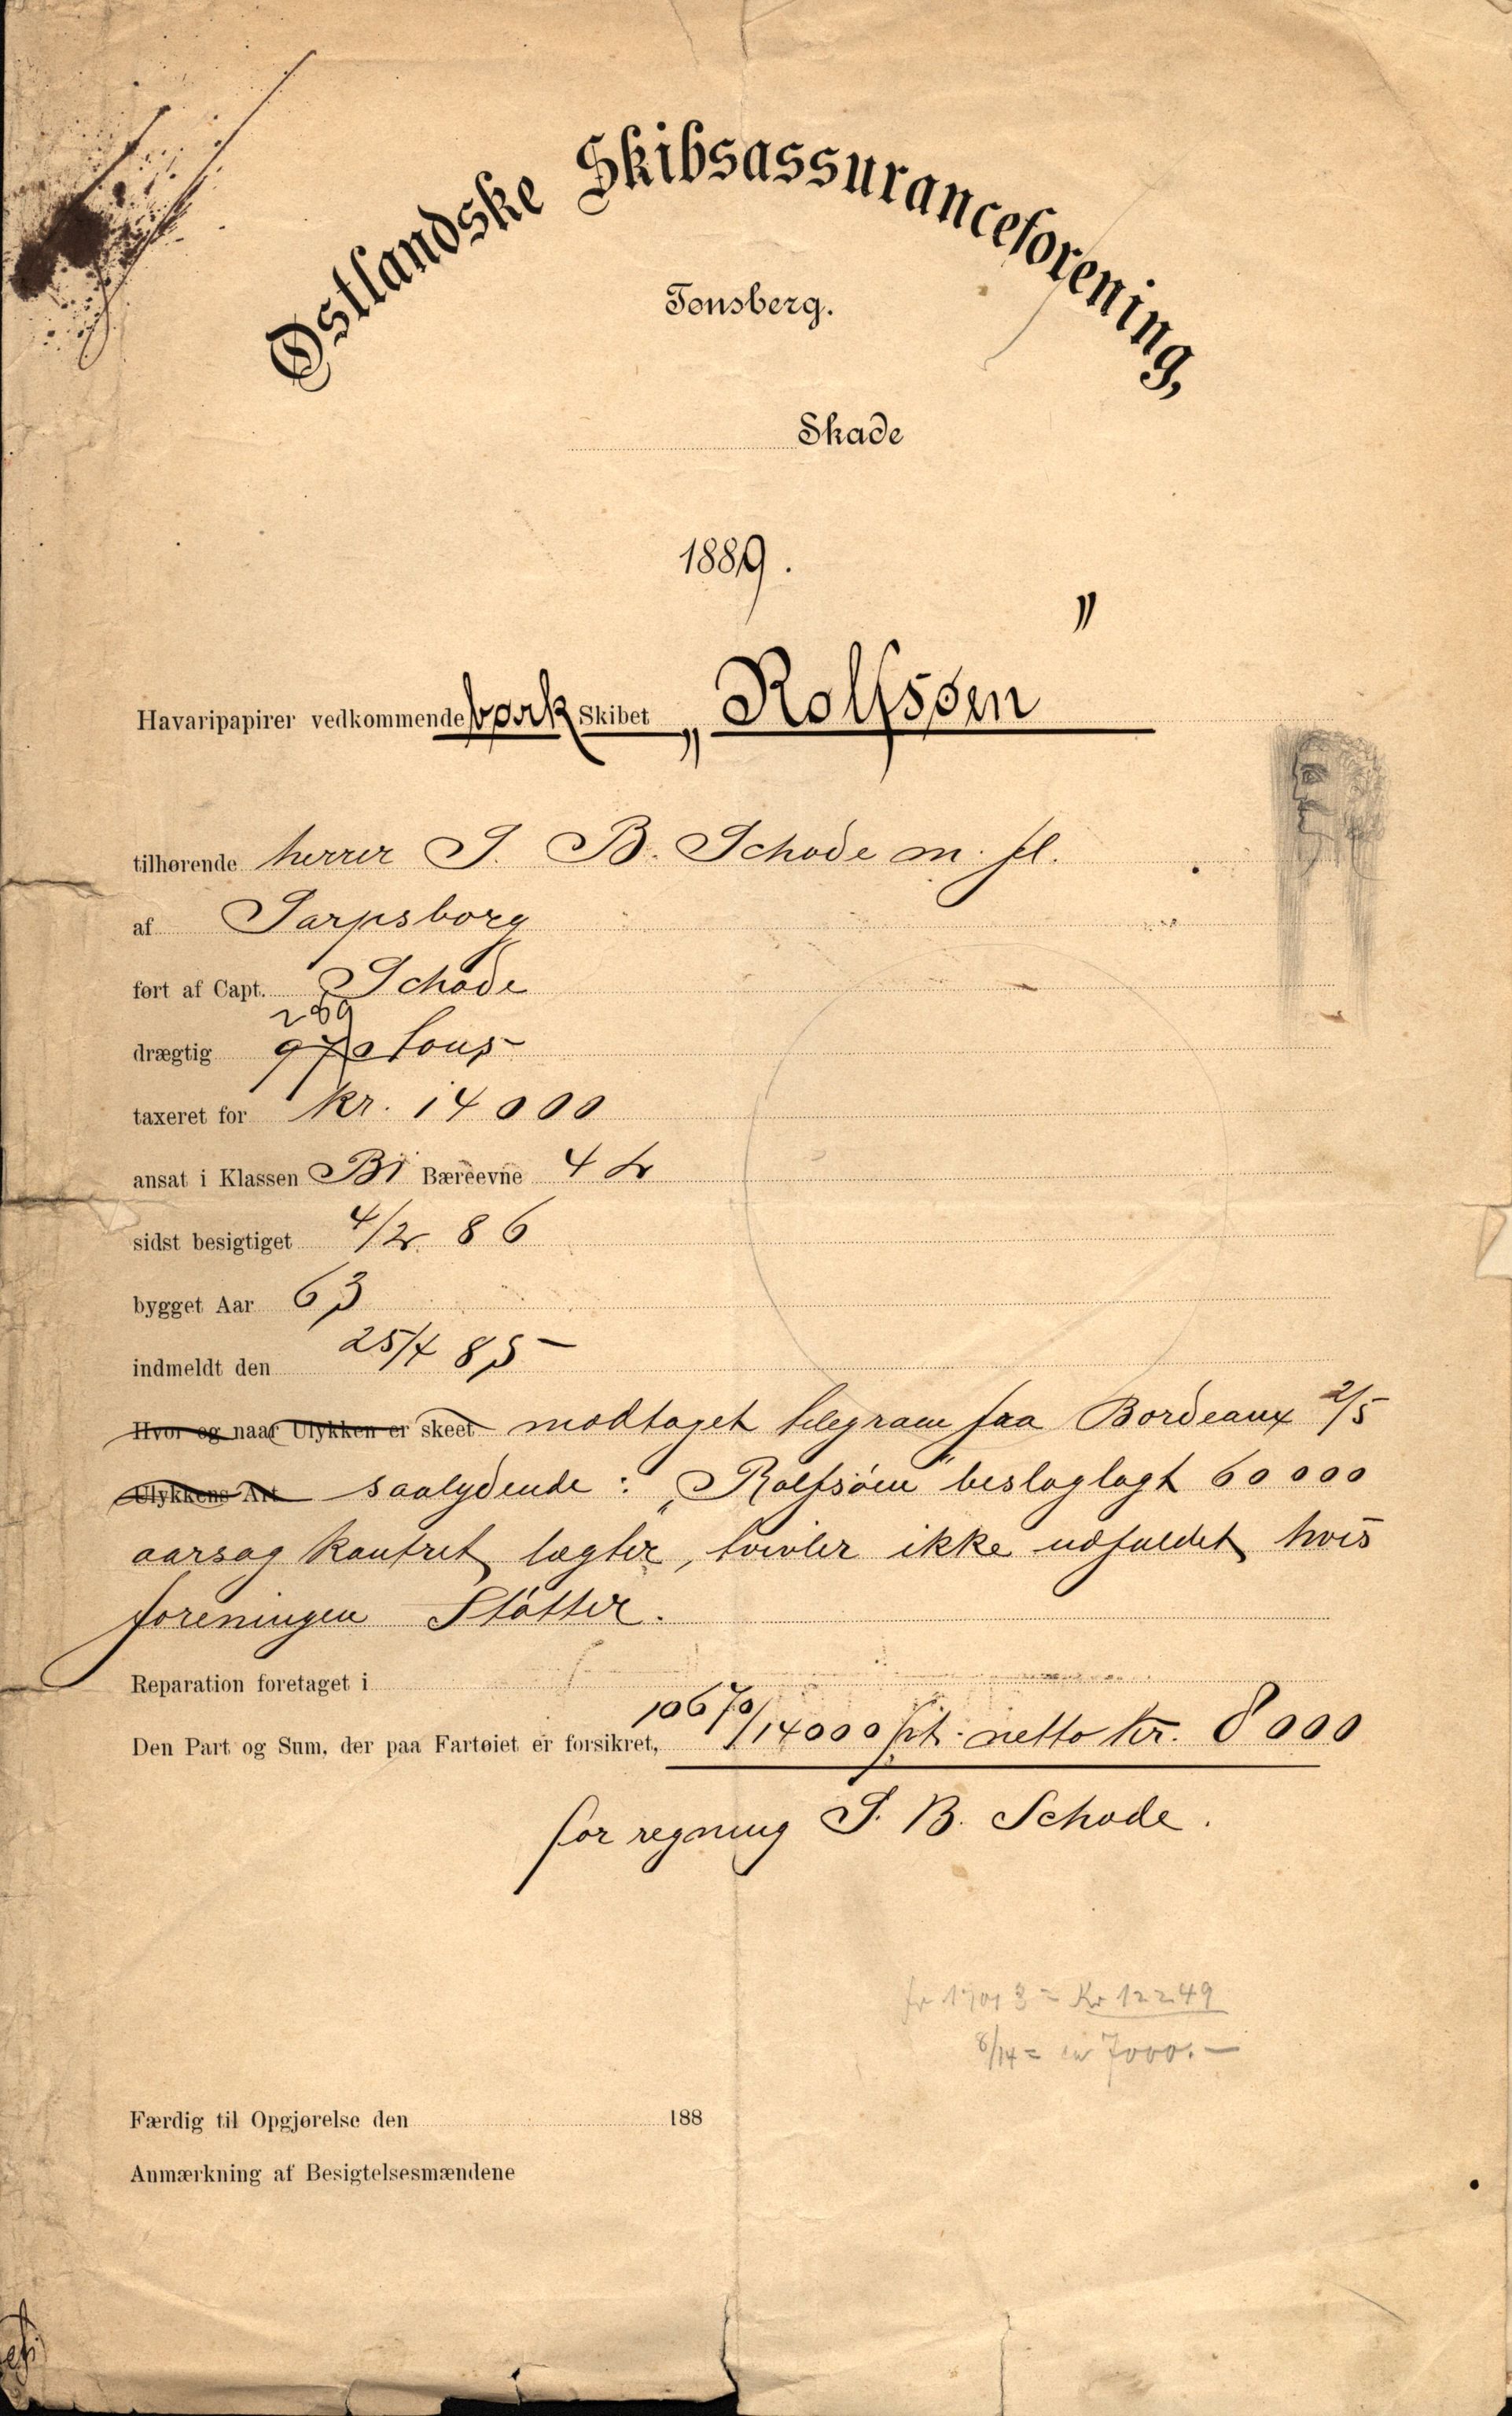 Østlandske Skibsassuranceforening,
Tønsberg.
Skade
1889.
Havaripapirer vedkommende bark Skibet „Rolfsøen”
tilhørende herrer S. B. Schade m. fl.
af Sarpsborg
ført af Capt. Schade
289
drægtig tons
taxeret for kr. 14000
ansat i Klassen B1 Bæreevne 4 Fv
sidst besigtiget 4/2 86
bygget Aar 63
indmeldt den 25/4 85
Hvor og naar Ulykken er skeet modtaget telegram fra Bordeaux 2/5
Ulykkens Art saalydende: „Rolfsøen” beslaglagt 60000
aarsag kantret lægter, tvivler ikke udfaldet hvis
foreningen Støtter.
Reparation foretaget i
Den Part og Sum, der paa Fartøiet er forsikret, 10670/14000 prt. netto kr. 8000
for regning S. B. Schade.
fr 17013 = Kr 12249
8/14 = ca 7000.—
Færdig til Opgjørelse den 188
Anmærkning af Besigtelsesmændene